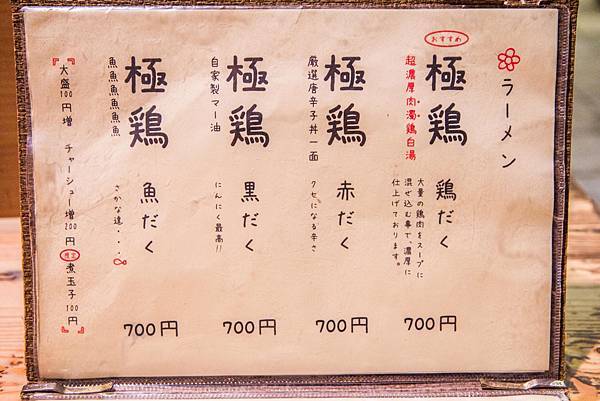 ラーメン
おすすめ
超濃厚肉濁鶏白湯
極鶏
鶏だく
大量の鶏肉をスープに
混ぜ込む事で、濃厚に
仕上げております。
700円
厳選唐辛子丼一面
極鶏
赤だく
クセになる辛さ
700円
自家製マー油
極鶏
黒だく
にんにく最高!!
700円
魚魚魚魚魚魚
極鶏
魚だく
さかな達・・・
700円
大盛100円増 チャーシュー増200円 限定 煮玉子100円